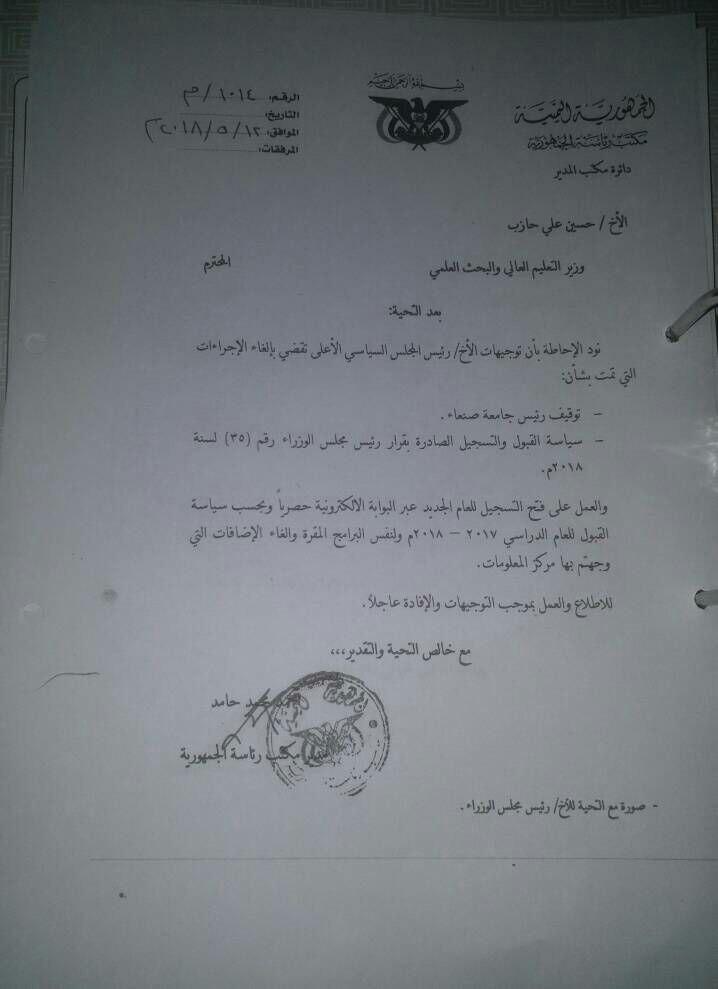 بسم الله الرحمن الرحيم
الجمهورية اليمنية
مكتب رئاسة الجمهورية
دائرة مكتب المدير
الرقم: ١٠١٤/م
التاريخ:
الموافق: ٢٠١٨/٥/١٢م
المرفقات:
الأخ / حسين علي حازب
وزير التعليم العالي والبحث العلمي المحترم
بعد التحية:
نود الإحاطة بأن توجيهات الأخ/ رئيس المجلس السياسي الأعلى تقضي بإلغاء الإجراءات
التي تمت بشأن:
– توقيف رئيس جامعة صنعاء.
– سياسة القبول والتسجيل الصادرة بقرار رئيس مجلس الوزراء رقم (٣٥) لسنة
٢٠١٨م.
والعمل على فتح التسجيل للعام الجديد عبر البوابة الالكترونية حصرياً وبحسب سياسة
القبول للعام الدراسي ٢٠١٧ – ٢٠١٨م ولنفس البرامج المقرة والغاء الإضافات التي
وجهتم بها مركز المعلومات.
للاطلاع والعمل بموجب التوجيهات والإفادة عاجلاً.
مع خالص التحية والتقدير،،،
محمد حامد
مكتب رئاسة الجمهورية
- صورة مع التحية للأخ/ رئيس مجلس الوزراء.